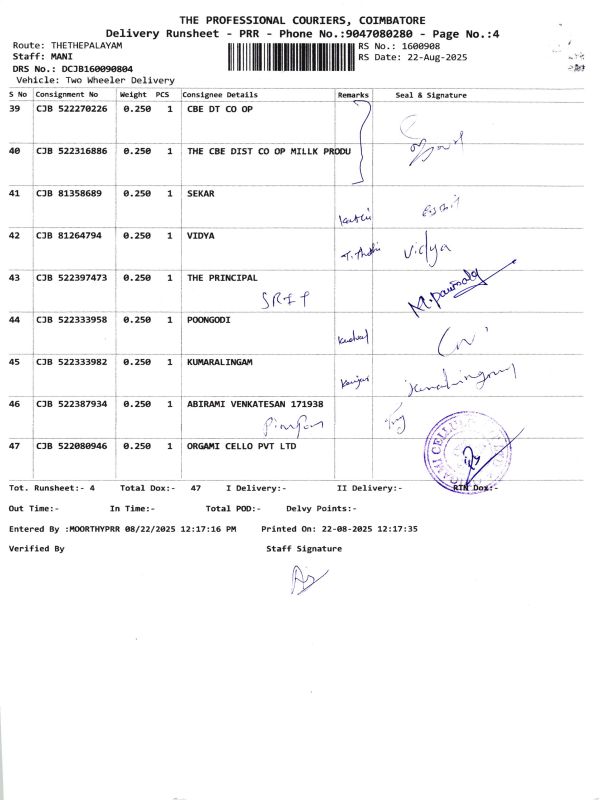 THE PROFESSIONAL COURIERS, COIMBATORE
Delivery Runsheet - PRR - Phone No.:9047080280 - Page No.:4
Route: THETHEPALAYAM RS No.: 1600908
Staff: MANI RS Date: 22-Aug-2025
DRS No.: DCJB160090804
Vehicle: Two Wheeler Delivery
S No Consignment No Weight PCS Consignee Details Remarks Seal & Signature
39 CJB 522270226 0.250 1 CBE DT CO OP
40 CJB 522316886 0.250 1 THE CBE DIST CO OP MILLK PRODU
41 CJB 81358689 0.250 1 SEKAR
42 CJB 81264794 0.250 1 VIDYA
Vidya
43 CJB 522397473 0.250 1 THE PRINCIPAL
44 CJB 522333958 0.250 1 POONGODI
45 CJB 522333982 0.250 1 KUMARALINGAM
46 CJB 522387934 0.250 1 ABIRAMI VENKATESAN 171938
47 CJB 522080946 0.250 1 ORGAMI CELLO PVT LTD
Tot. Runsheet:- 4 Total Dox:- 47 I Delivery:- II Delivery:- RTN Dox:-
Out Time:- In Time:- Total POD:- Delvy Points:-
Entered By :MOORTHYPRR 08/22/2025 12:17:16 PM Printed On: 22-08-2025 12:17:35
Verified By Staff Signature